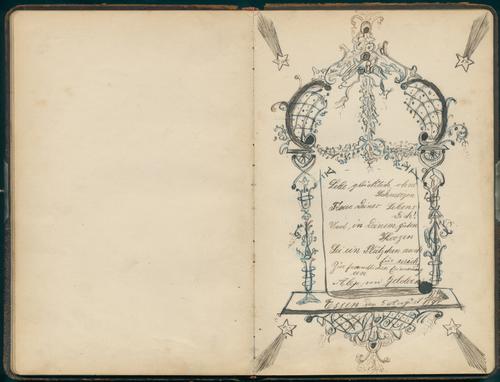 Lebe glücklich ohne
Schmerzen
Freue Deines Lebens
Dich!
Und in Deinem guten
Herzen
Sei ein Plätzchen auch
für mich
Zur freundlichen Erinnerung
von
Geldern
Essen 5 August